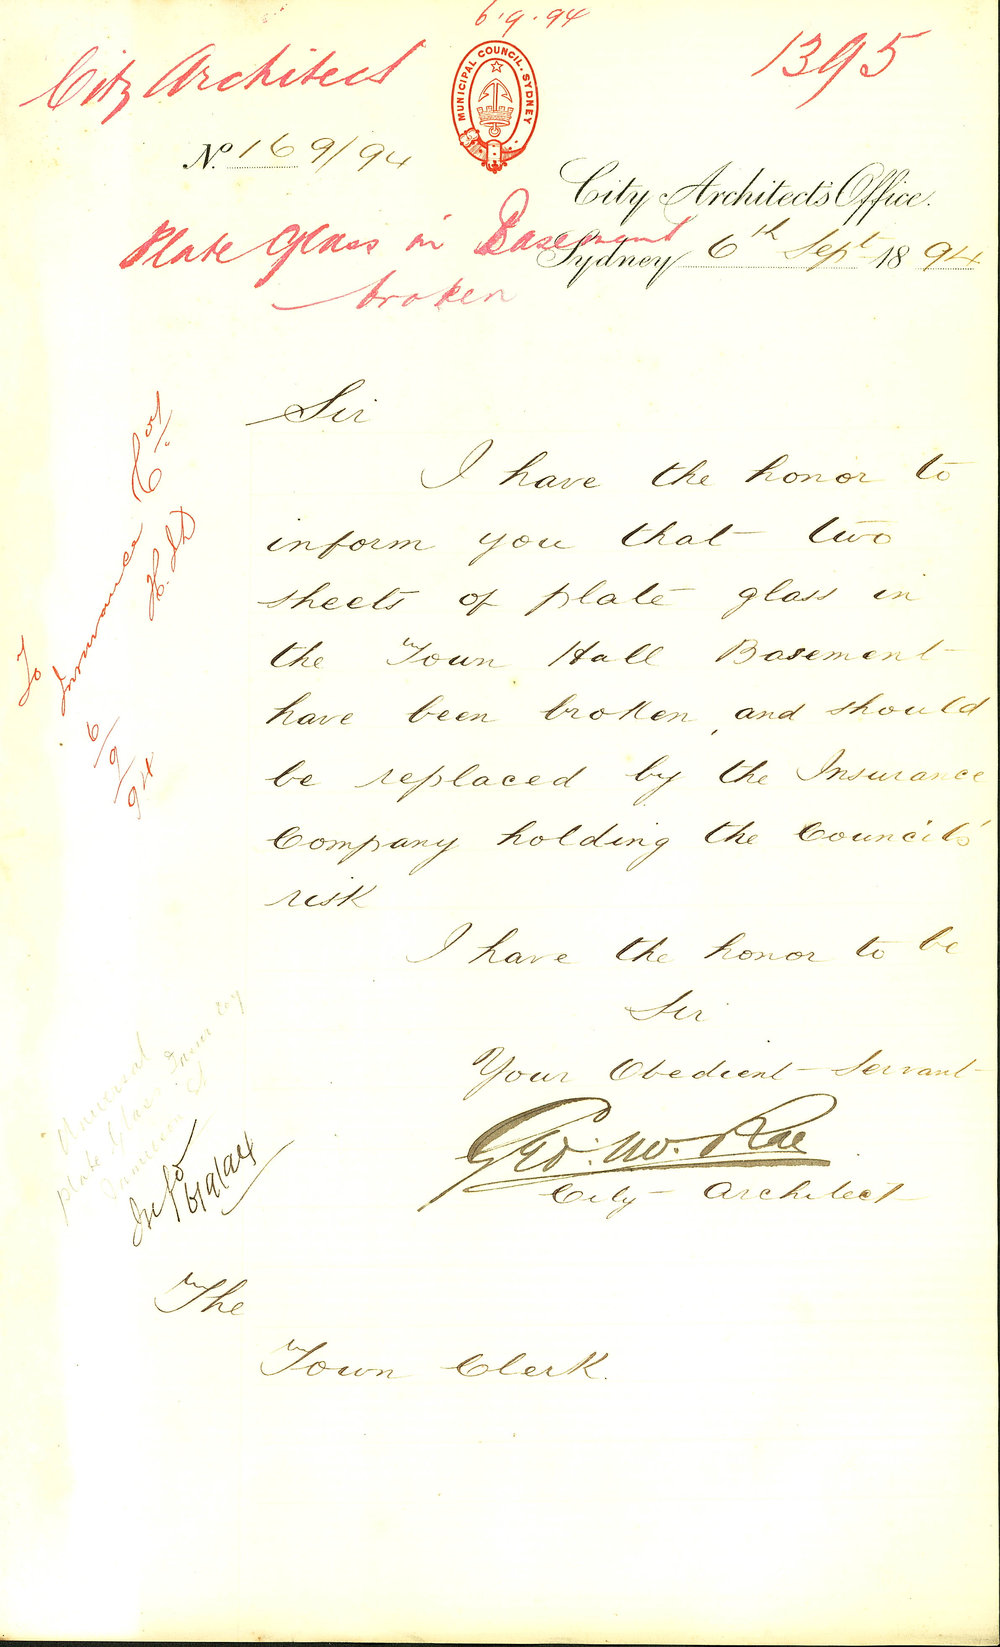 6.9.94
City Architect
1395
MUNICIPAL COUNCIL. SYDNEY
No. 169/94
City Architect's Office.
Plate Glass in Basement
broken
Sydney 6th Sept 1894
Sir
I have the honor to
inform you that two
sheets of plate glass in
the Town Hall Basement
have been broken, and should
be replaced by the Insurance
Company holding the Council's
risk
I have the honor to be
Sir
Your Obedient Servant
Geo: McRae
City Architect
The
Town Clerk.
To
Insurance Coy
6/9/94
Universal
Plate Glass Insur Coy
6/9/94